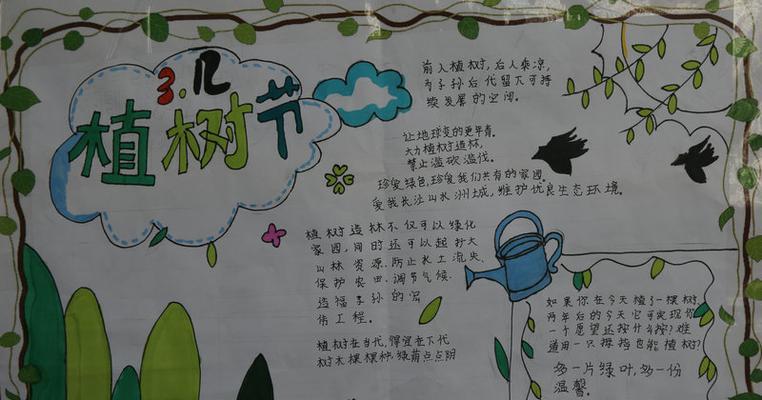 3.12
植树节
前人植树,后人乘凉,
为子孙后代留下可持
续发展的空间。
让地球变的更年青。
大力植树造林,
禁止滥砍滥伐。
珍爱绿色,珍爱我们共有的家园。
爱我长江山水洲城,维护优良生态环境。
植树造林不仅可以绿化
家园,同时还可以起扩大
山林资源、防止水土流失、
保护农田、调节气候、
造福子孙的宏
伟工程。
植树在当代,得宜在下代
树木棵棵种,绿荫点点阴
如果你在今天植了一棵树
两年后的今天它可实现你
一个愿望还按什么按!难
道用一只拇指也能植树?
多一片绿叶,多一份
温馨。